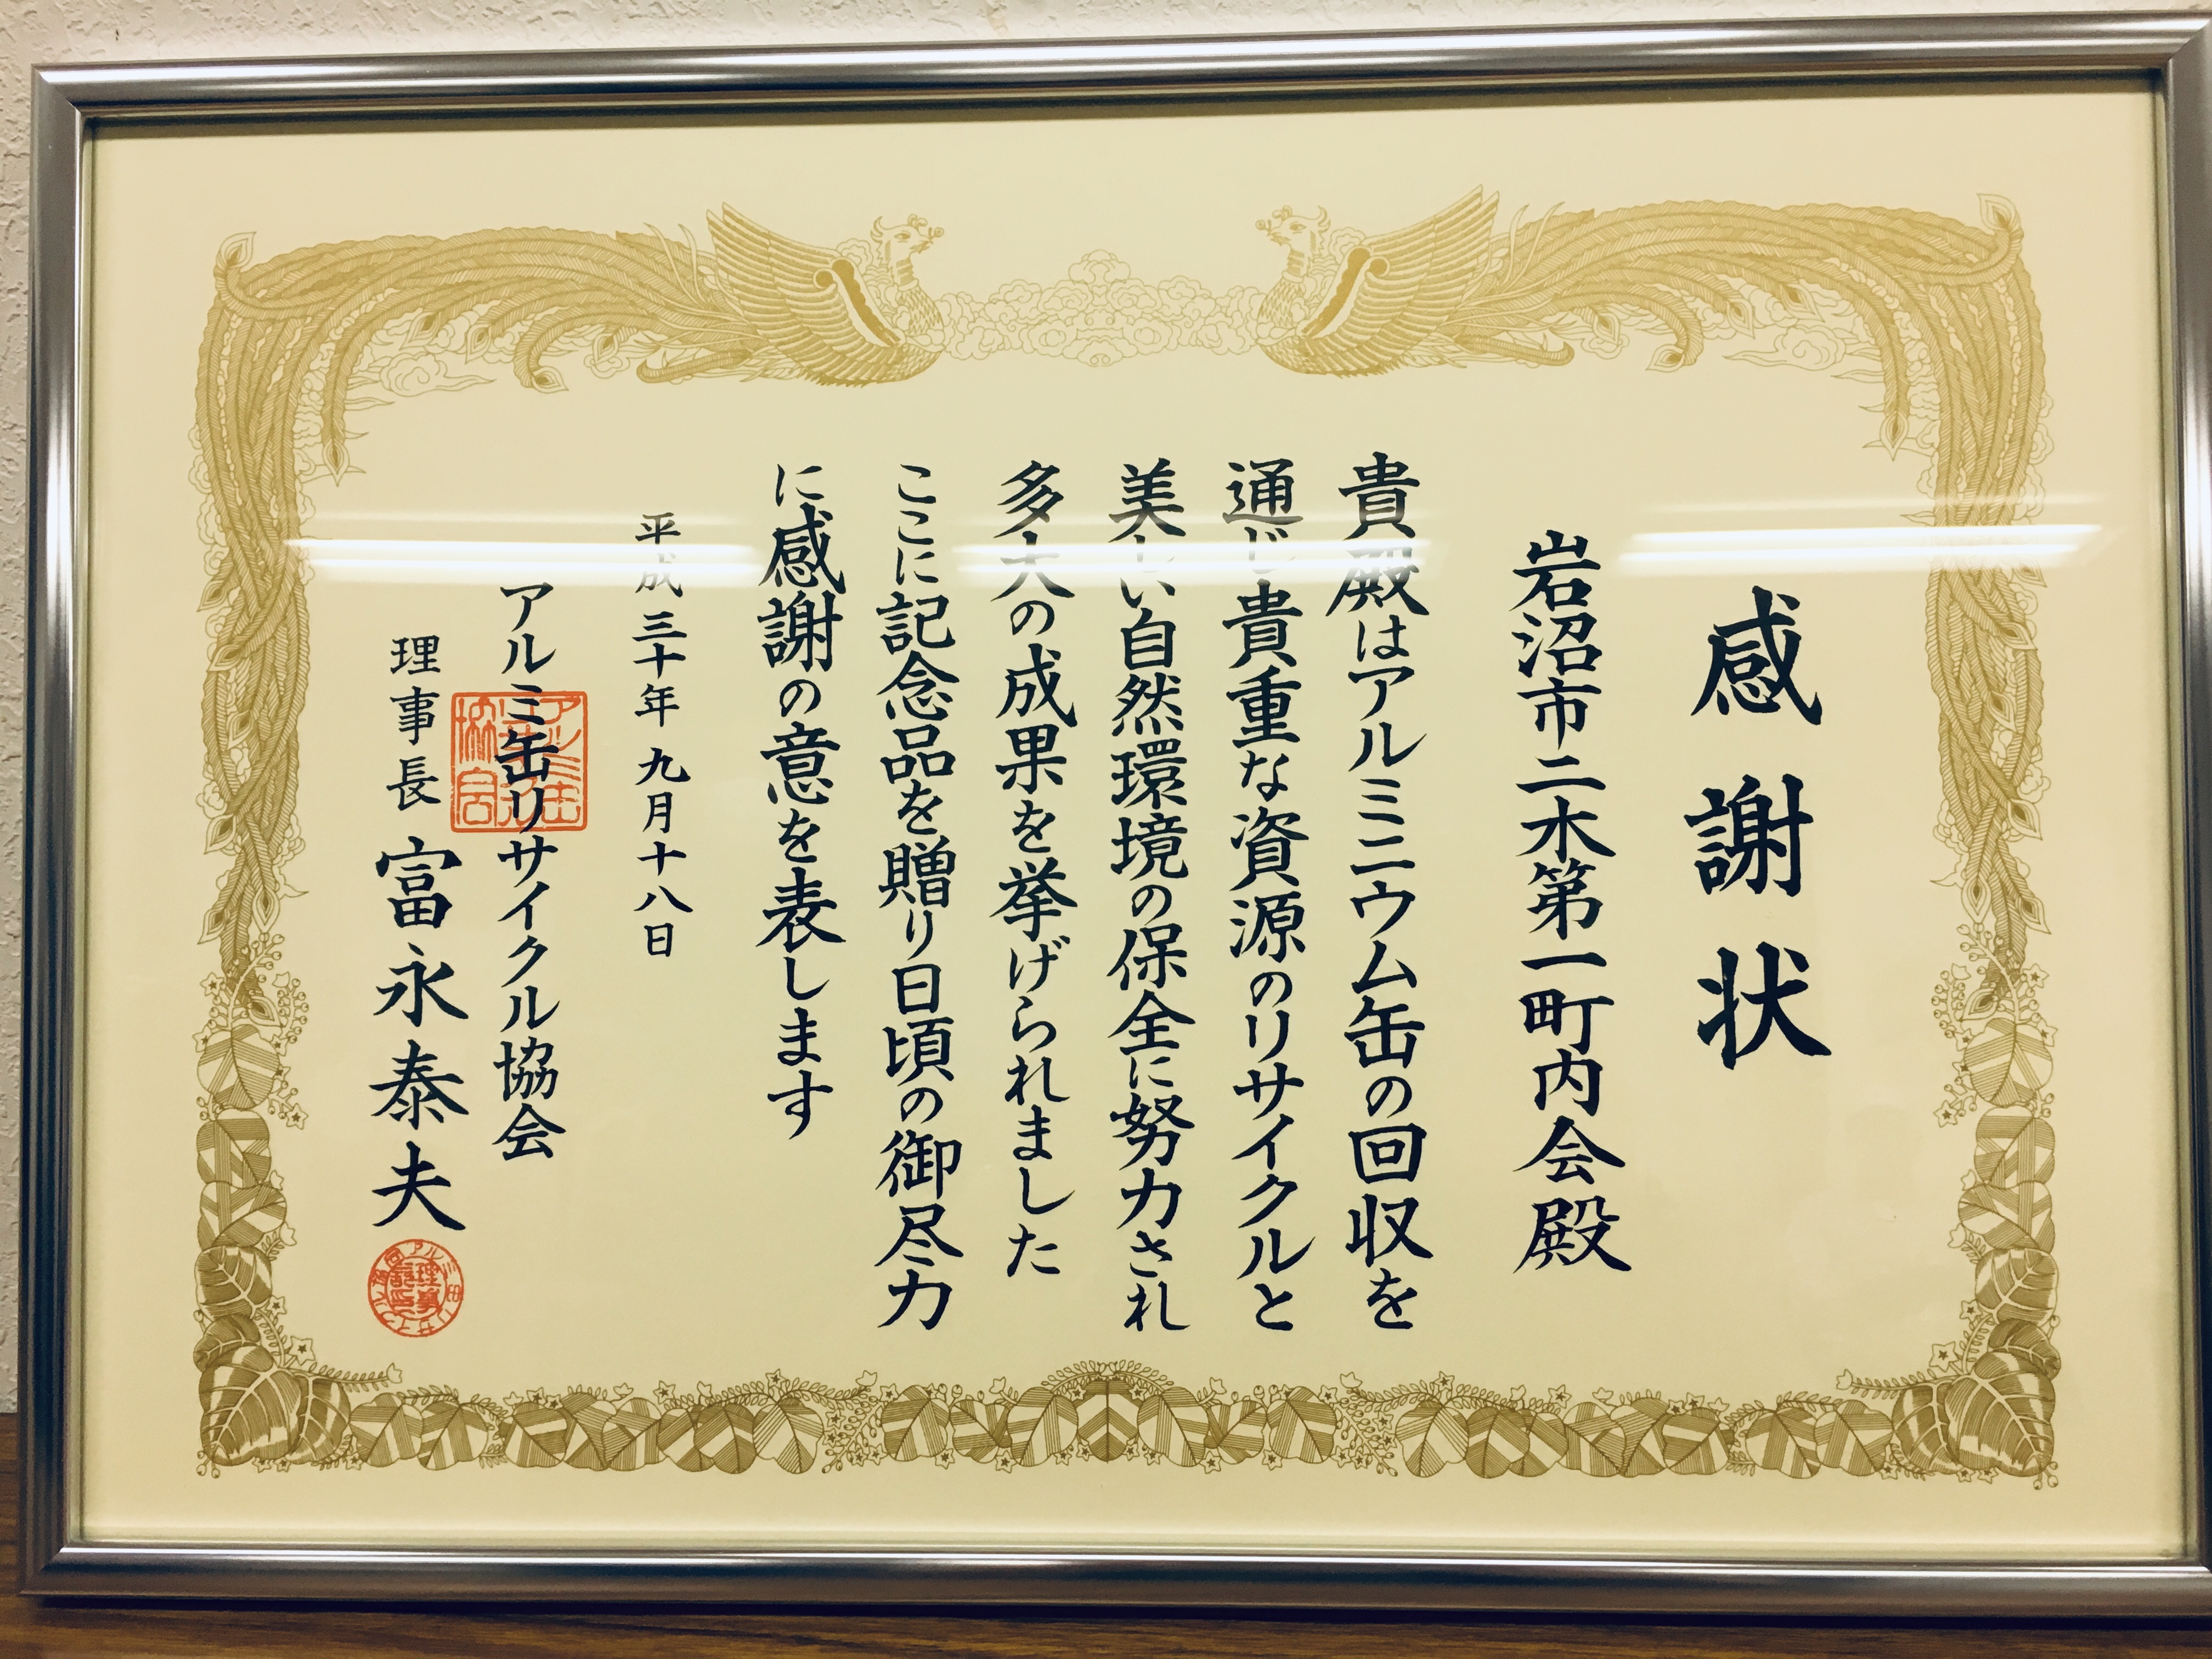 感謝状
岩沼市二木第一町内会殿
貴殿はアルミニウム缶の回収を
通じ貴重な資源のリサイクルと
美しい自然環境の保全に努力され
多大の成果を挙げられました
ここに記念品を贈り日頃の御尽力
に感謝の意を表します
平成三十年九月十八日
アルミ缶リサイクル協会
理事長 富永泰夫